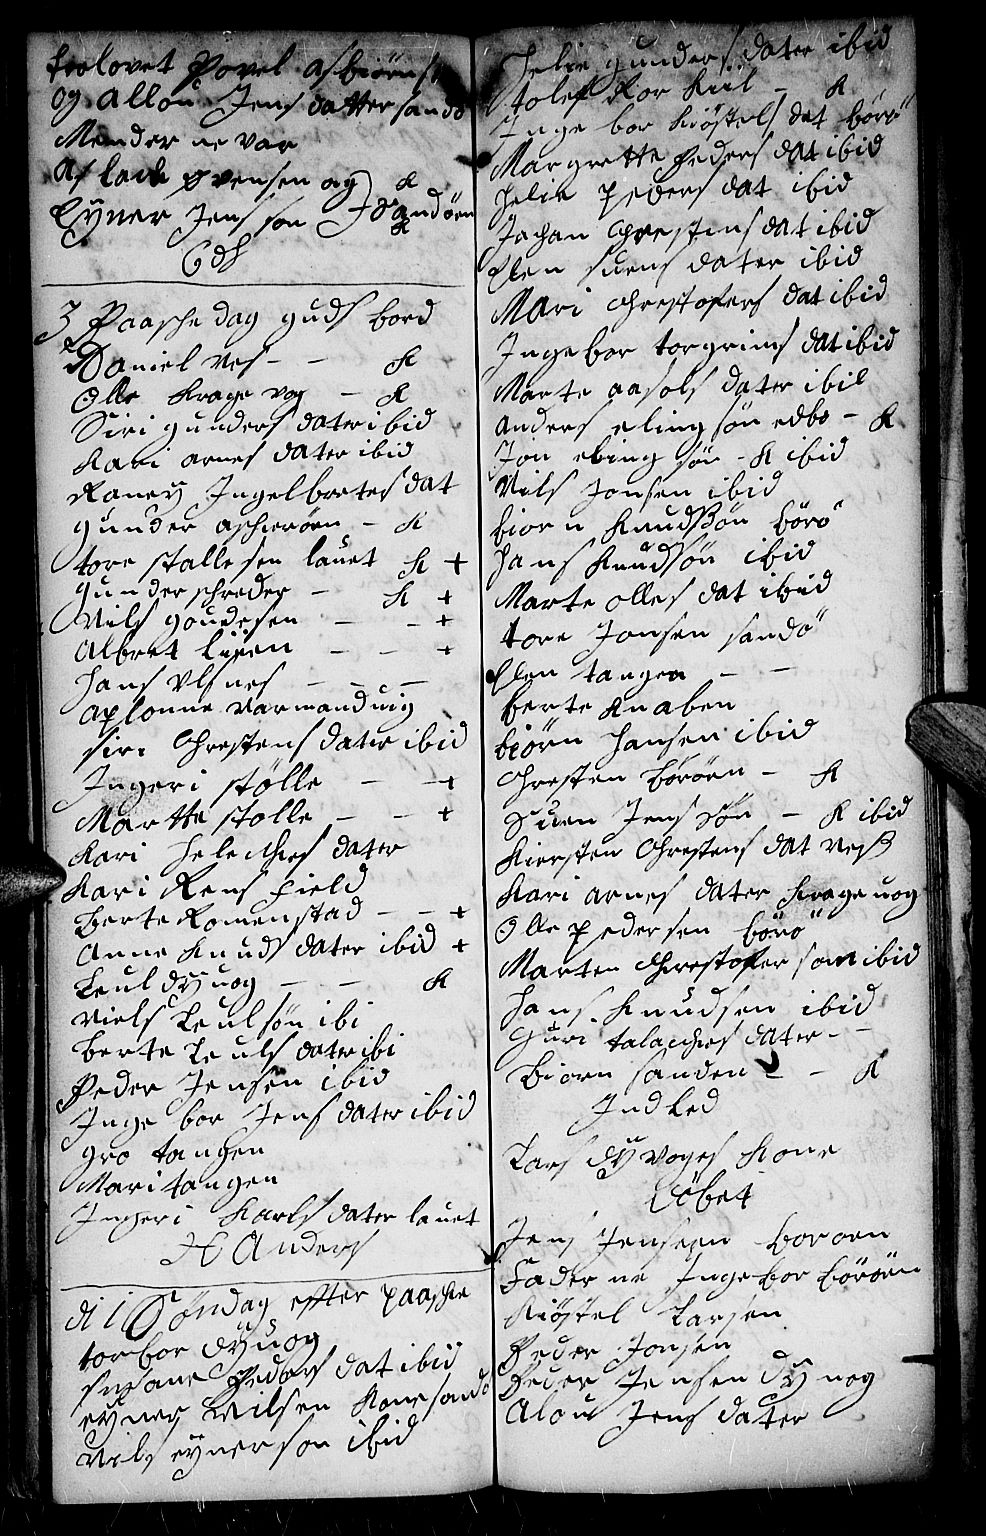 trolovet Povel asbiørns
og allou Jens datter sandø
Mender ne var
Aslack svensen og K
Eyner Jens son Sandøen K
6 dl
3 Paasche dag guds bord
Daniel Ves - - K
Olle Krage vog - K
Siri gunders dater ibid
Kari arnes dater ibid
Raney Ingelbretes dat
gunder aschierøen - K
tore stallesen lauet K +
gunder schreder - K +
Nils goudesen - - +
Albret lien - - +
Hans Ulsnes - - -
aplonne Narmanduig
siri Chrestens dater ibid
Ingeri stølle - - +
Martte stolle - - +
Kari dater
Kari Rens field
Berte Romenstad - - +
Anne Knuds dater ibid +
Leul dyuog - - K
Niels Leulsøn ibi
Berte Leuls dater ibi
Peder Jensen ibid
Inge bor Jens dater ibid
gro tangen
Mari tangen
Ingeri Karls dater lauet
H Anders
di 1 Søndag effter paasche
torbor dyuog
susane Peders dat ibid
eyner Nilsen Kone sandø
Nils eyner son ibid
Helie gunders dater ibid
tolef Kiil - K
Inge bor Kiøstels dat børø
Margrette Peders dat ibid
Helie peders dat ibid
Jachan Chrestens dat ibid
Elen suens dater ibid
Mari Chrestofers dat ibid
Inge bor torgrims dat ibid
Marte aasols dater ibil
Anders elingsøn edbo - K
Jon elingsøn - K ibid
Nils Jonsen ibid
biorn Knudsøn børø
Hans Knudsøn ibid
Marte olles dat ibid
tore Jonsen sandø
Elen tangen - -
berte Knaben
biørn Hansen ibid
Chresten børøen - K
Suen Jens søn - K ibid
Kiersten Chrestens dat Ves
Kari arnes dater Krageuog
Olle pedersen børø
Marten Chrestofer son ibid
Hans Knudsen ibid
Guri dater -
Biorn sanden - - K
Indled
Lars dyvoges Kone
Døbet
Jens Jensen borøen
Fader ne Inge bor børøen
Kiøstel Larsen
Peder Jonsen
Peder Jensen dy uog
Alou Jens dater